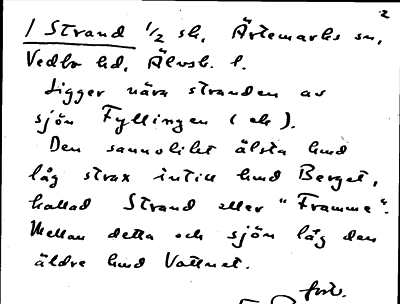 2
1 Strand 1/2 sk, Ärtemarks sn,
Vedbo hd, Älvsb. l.
Ligger nära stranden av
sjön Fyllingen (ek).
Den sannolikt älsta hmd
låg strax intill hmd Berget,
kallad Strand eller "Framme".
Mellan detta och sjön låg den
äldre hmd Vattnet.
forts.